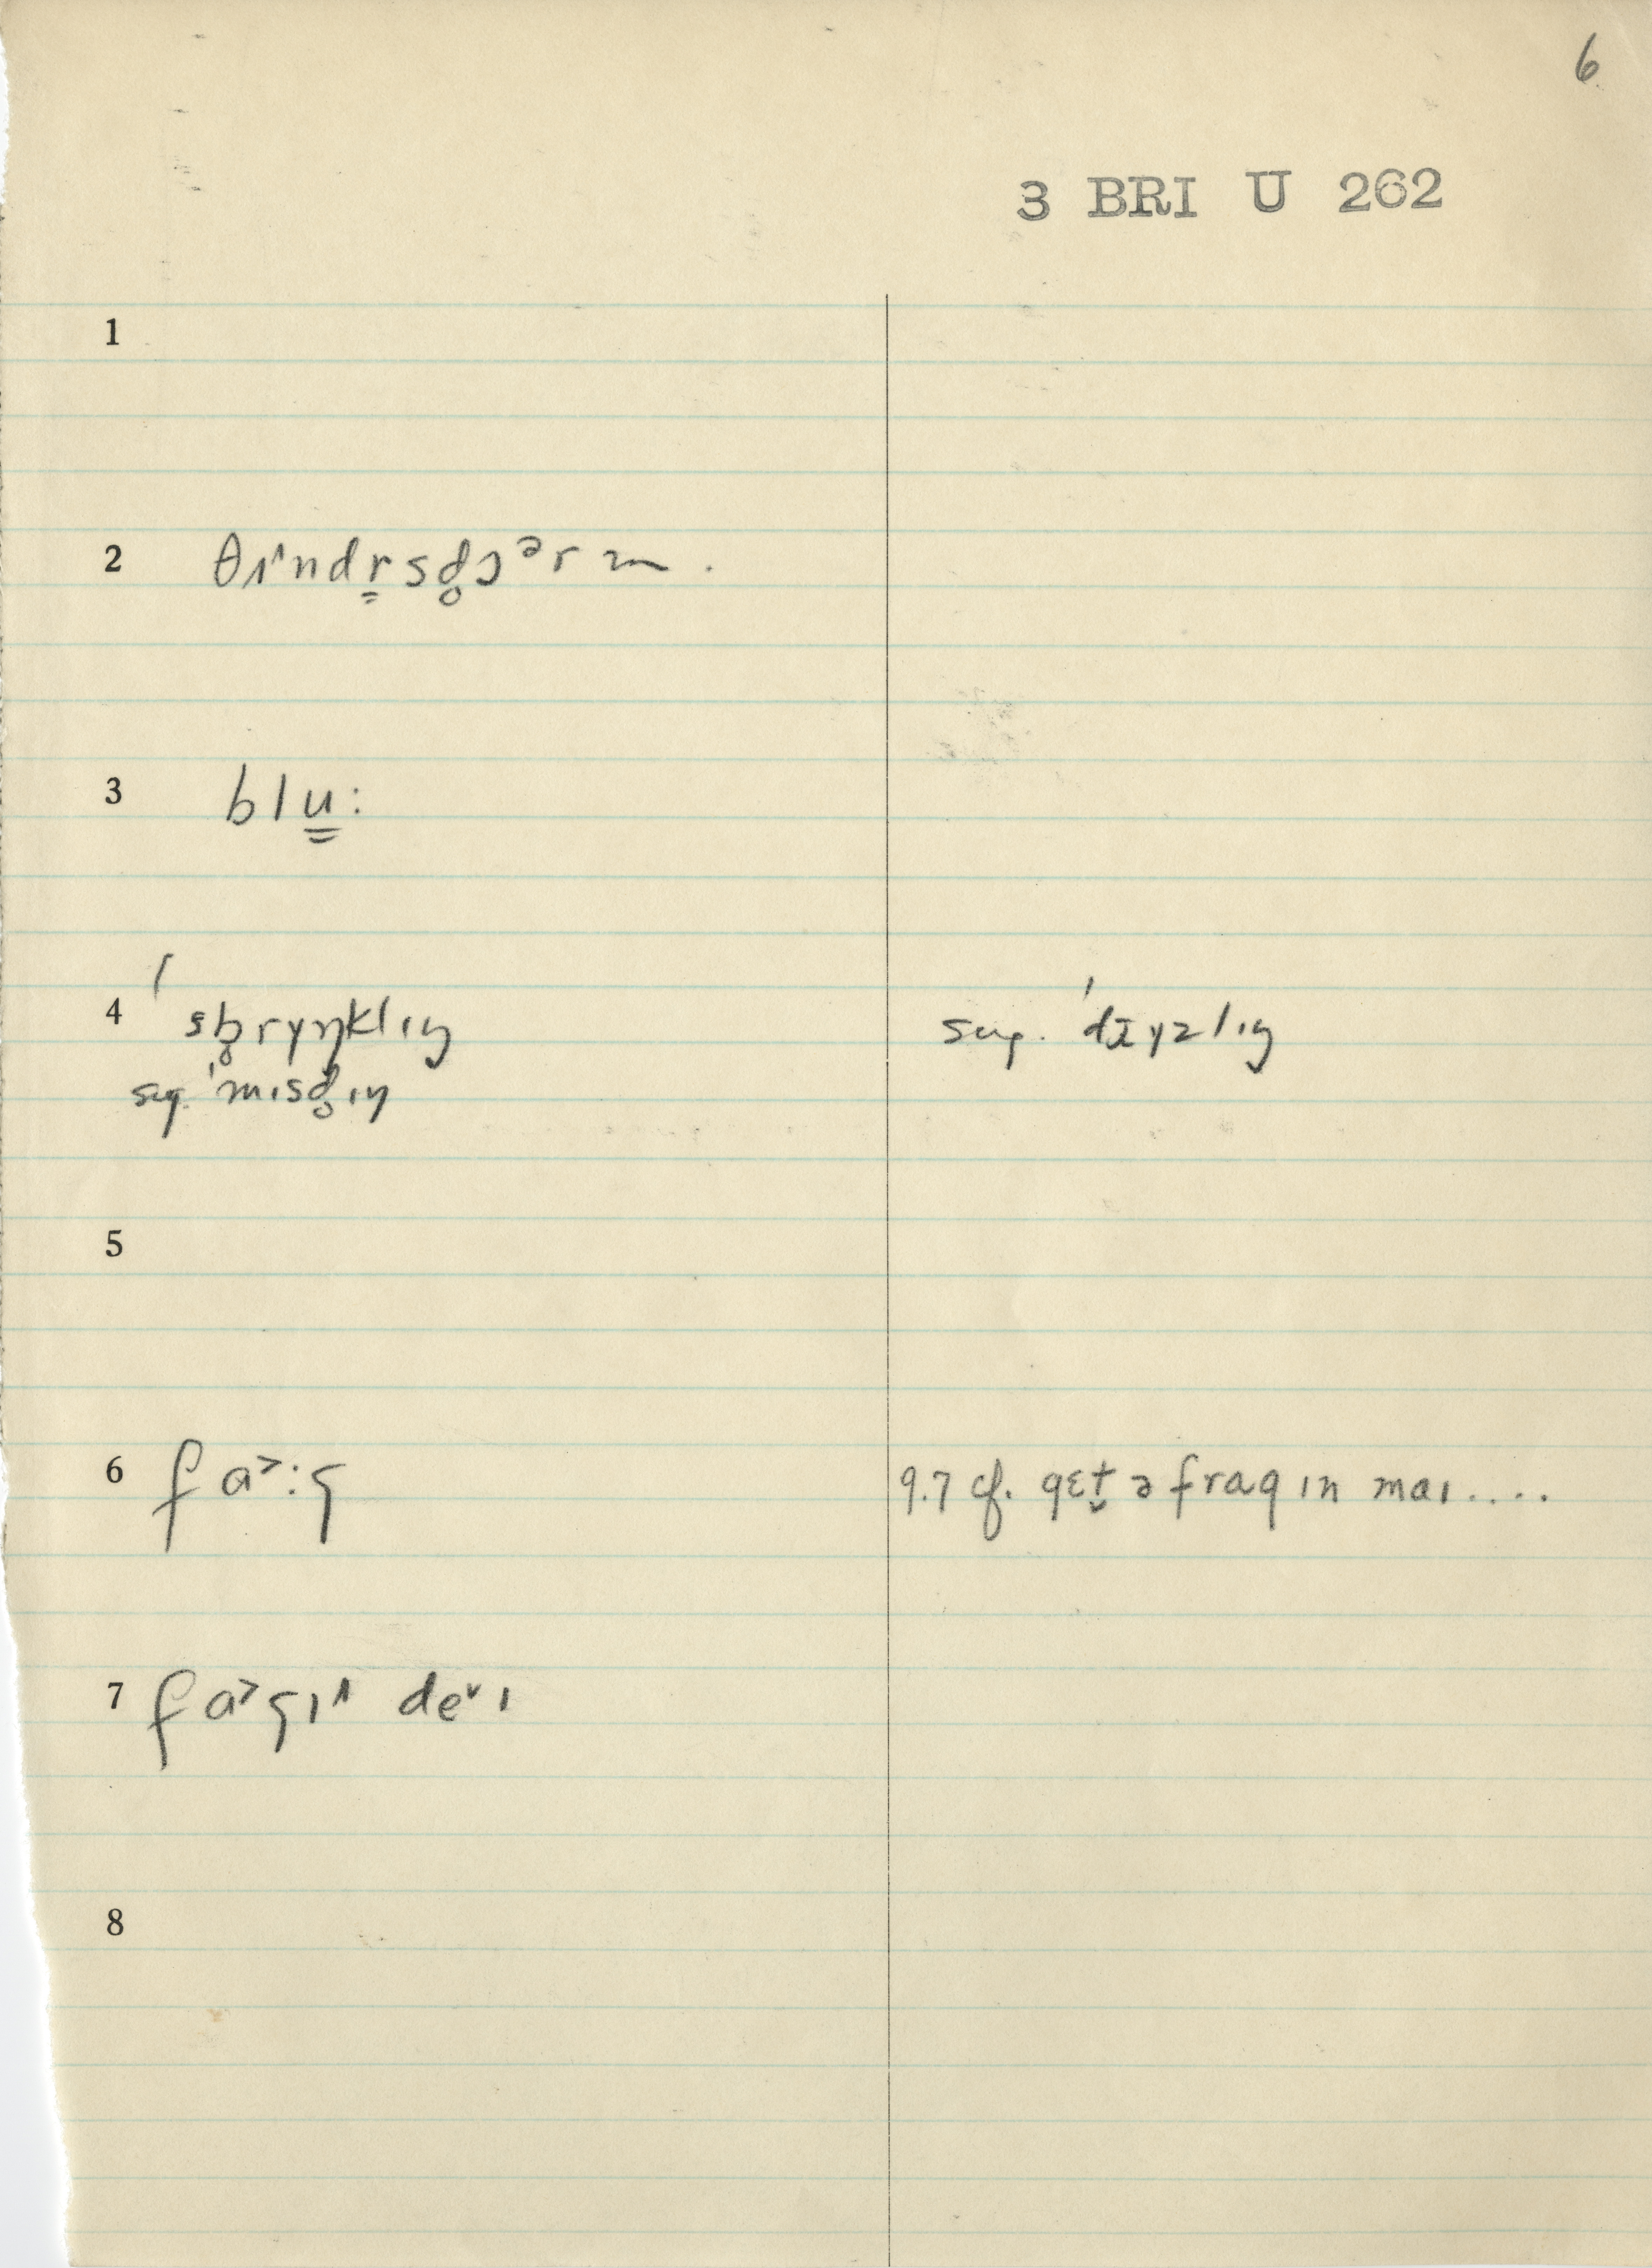 6
3 BRI U 262
1
2 θɪ^ndr̳sd̥ɔᵊrm.
3 blu̳:
4 ˈsb̥rɪŋklɪŋ
sug. ˈmɪsd̥ɪŋ
sug. ˈdrɪzlɪŋ
5
6 fa˃:g
9.7 cf. gɛt̬ ə frag ɪn maɪ....
7 fa˃gɪ^ de˅ɪ
8